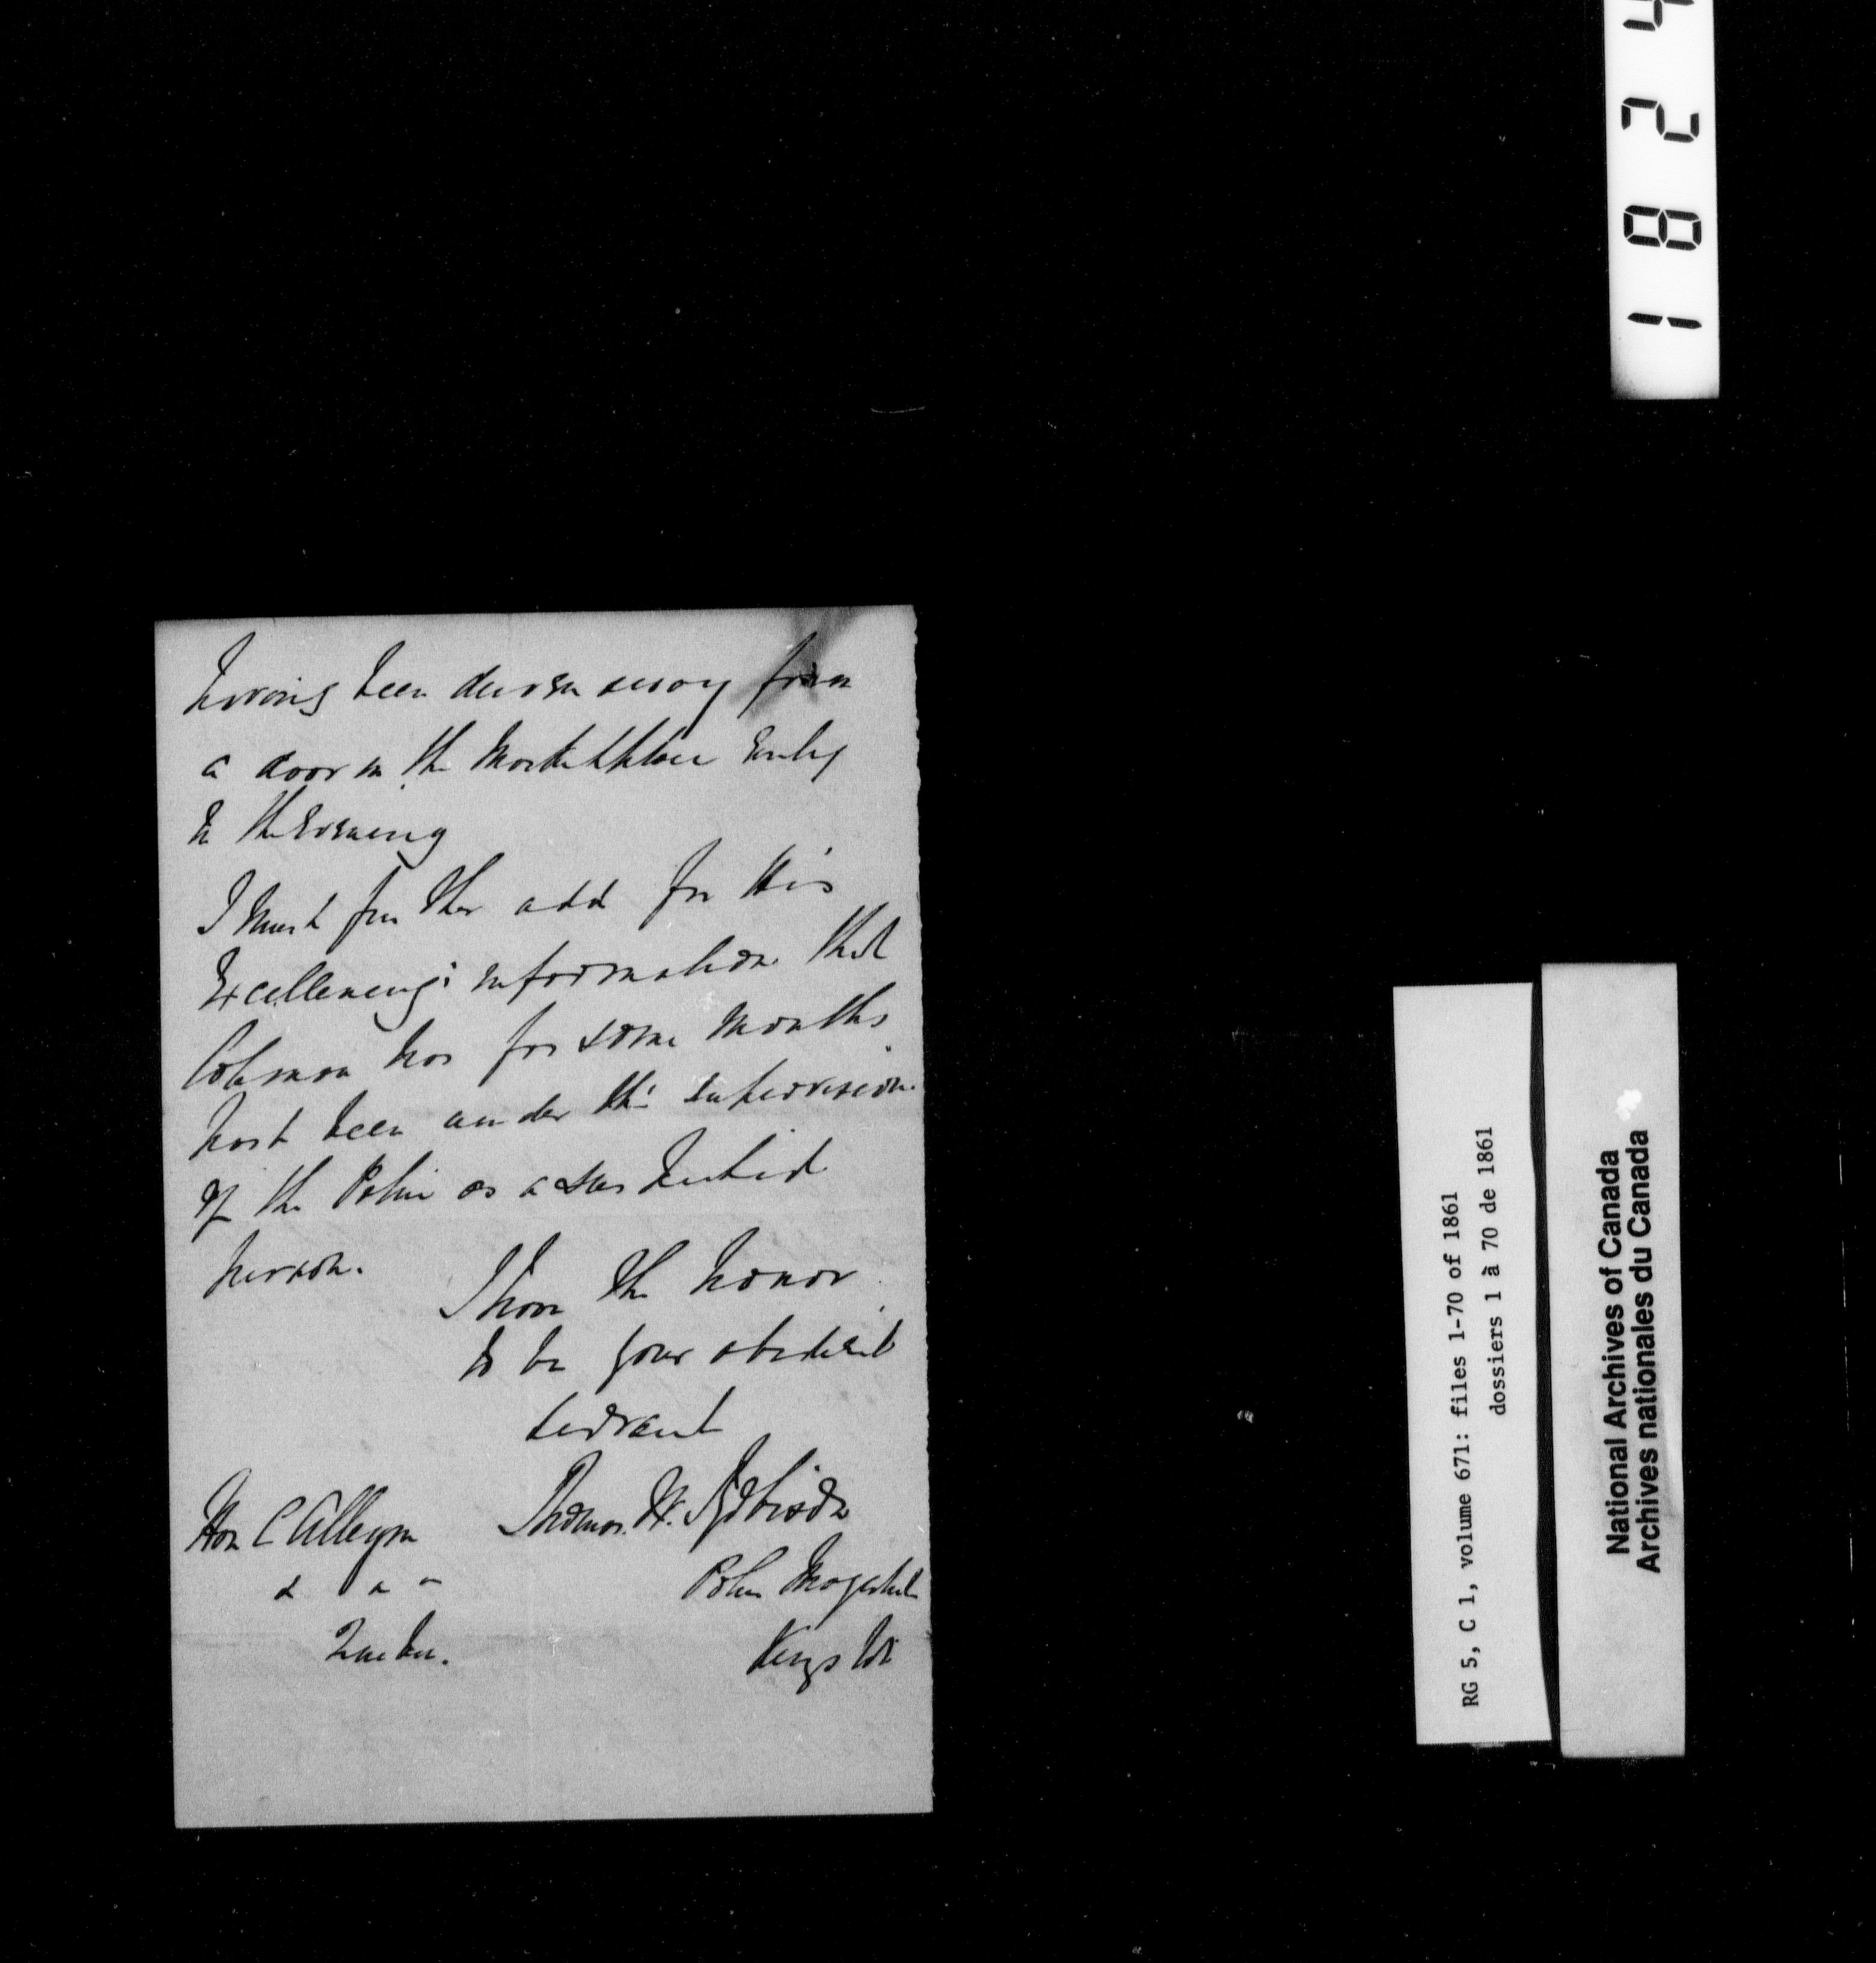 having been driven away from
a door in the Market place Early
in the Evening
I must further add for His
Excellency's information that
Coleman has for some months
past been under the supervision
of the Police as a suspected
person.
I have the honor
to be your obedient
servant
Thomas W. Robison
Police Magistrate
Kingston
Hon C Alleyn
& " "
Quebec.
1824
RG 5, C 1, volume 671: files 1-70 of 1861
dossiers 1 à 70 de 1861
National Archives of Canada
Archives nationales du Canada